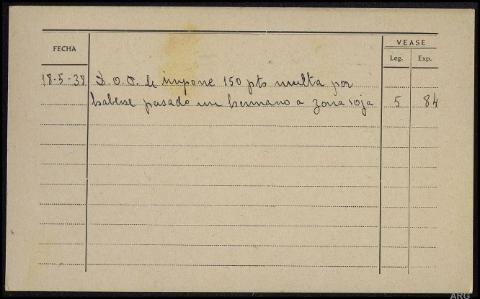 FECHA
VEASE
Leg. Exp.
18-5-38 S.O.P. le impone 150 pts multa por
haberse pasado un hermano a zona roja 5 84
ARG